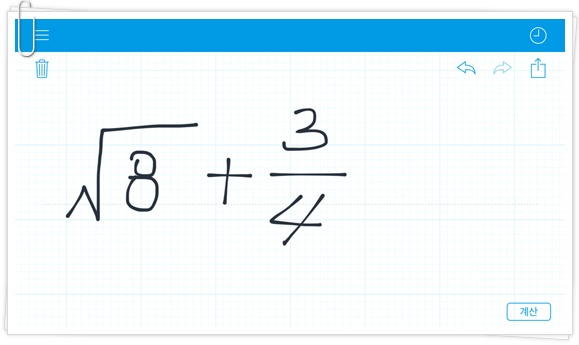 √8 + 3/4
계산